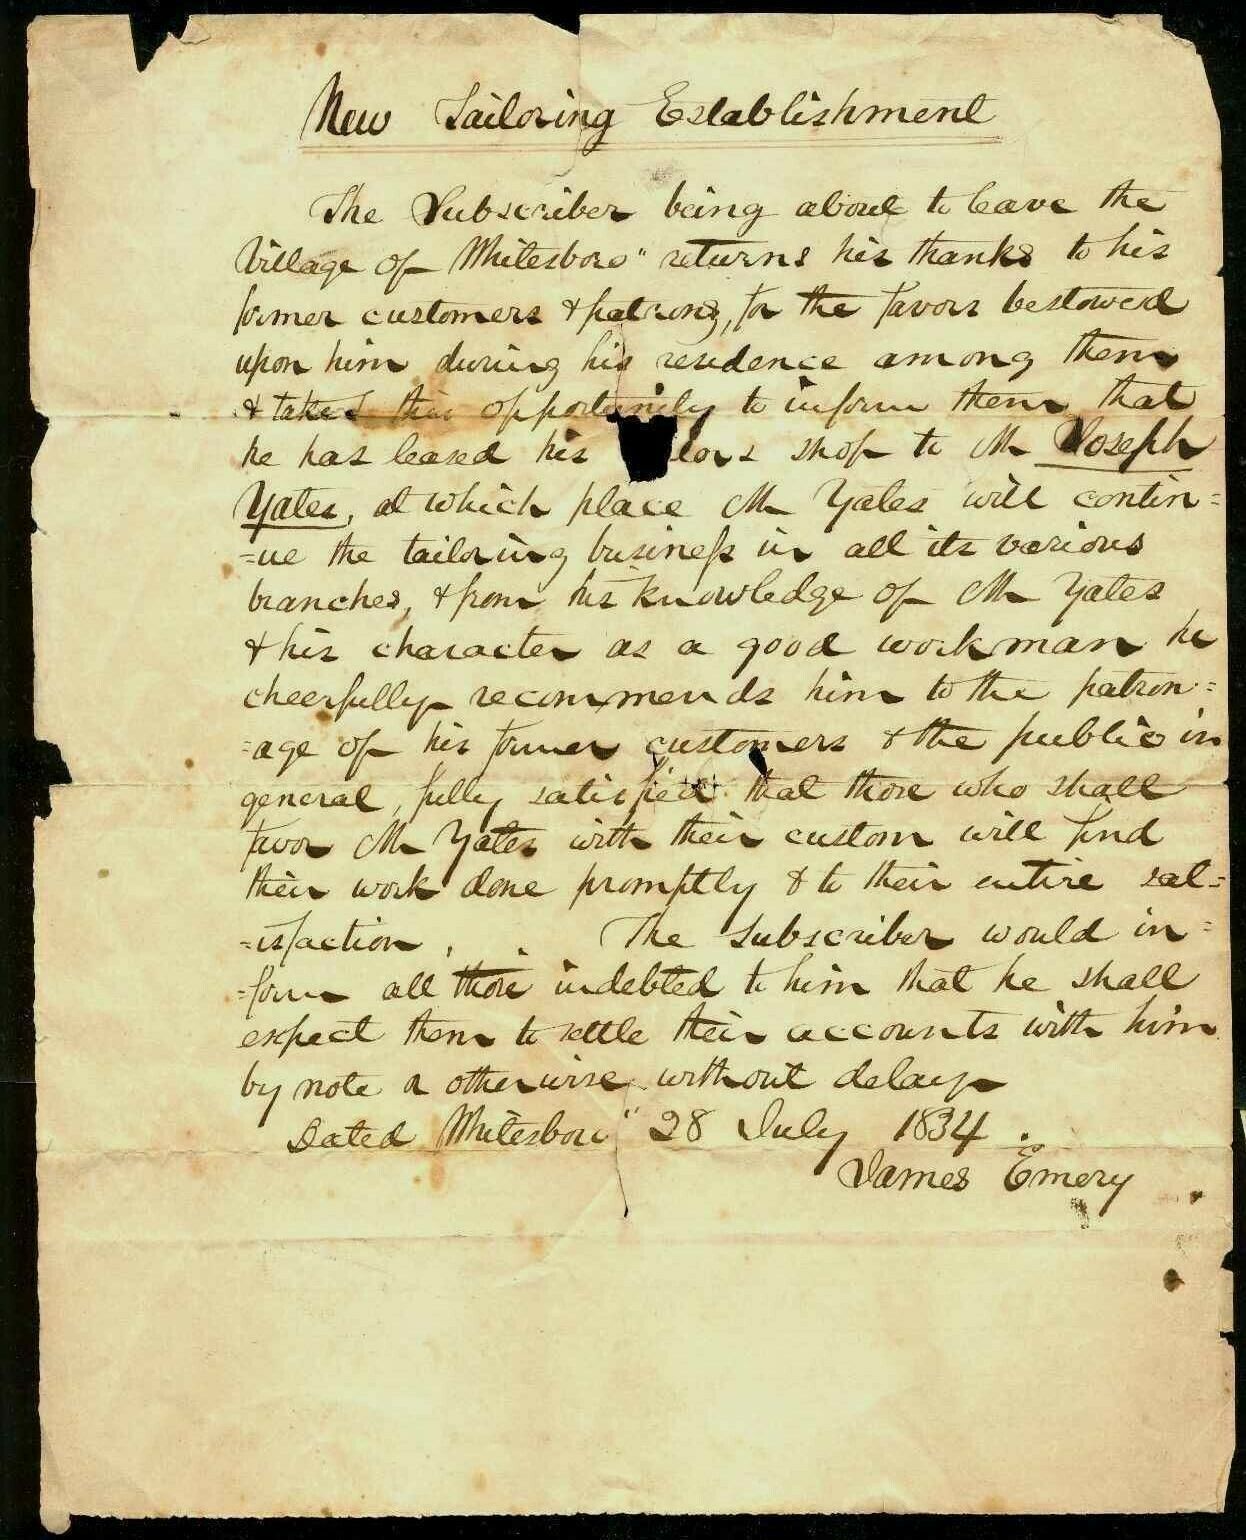 New Tailoring Establishment
The Subscriber being about to leave the
Village of Whitesboro" returns his thanks to his
former customers & patrons, for the favors bestowed
upon him during his residence among them
& takes this opportunity to inform them that
he has leased his lors shop to Mr Joseph
Yates, at which place Mr Yates will contin=
=ue the tailoring business in all its various
branches, & from his knowledge of Mr Yates
& his character as a good workman he
cheerfully recommends him to the patron=
=age of his former customers & the public in
general, fully satisfied that those who shall
favor Mr Yates with their custom will find
their work done promptly & to their entire sat=
=isfaction, . The Subscriber would in=
=form all those indebted to him that he shall
expect them to settle their accounts with him
by note or otherwise without delay
Dated Whitesboro" 28 July 1834.
James Emery